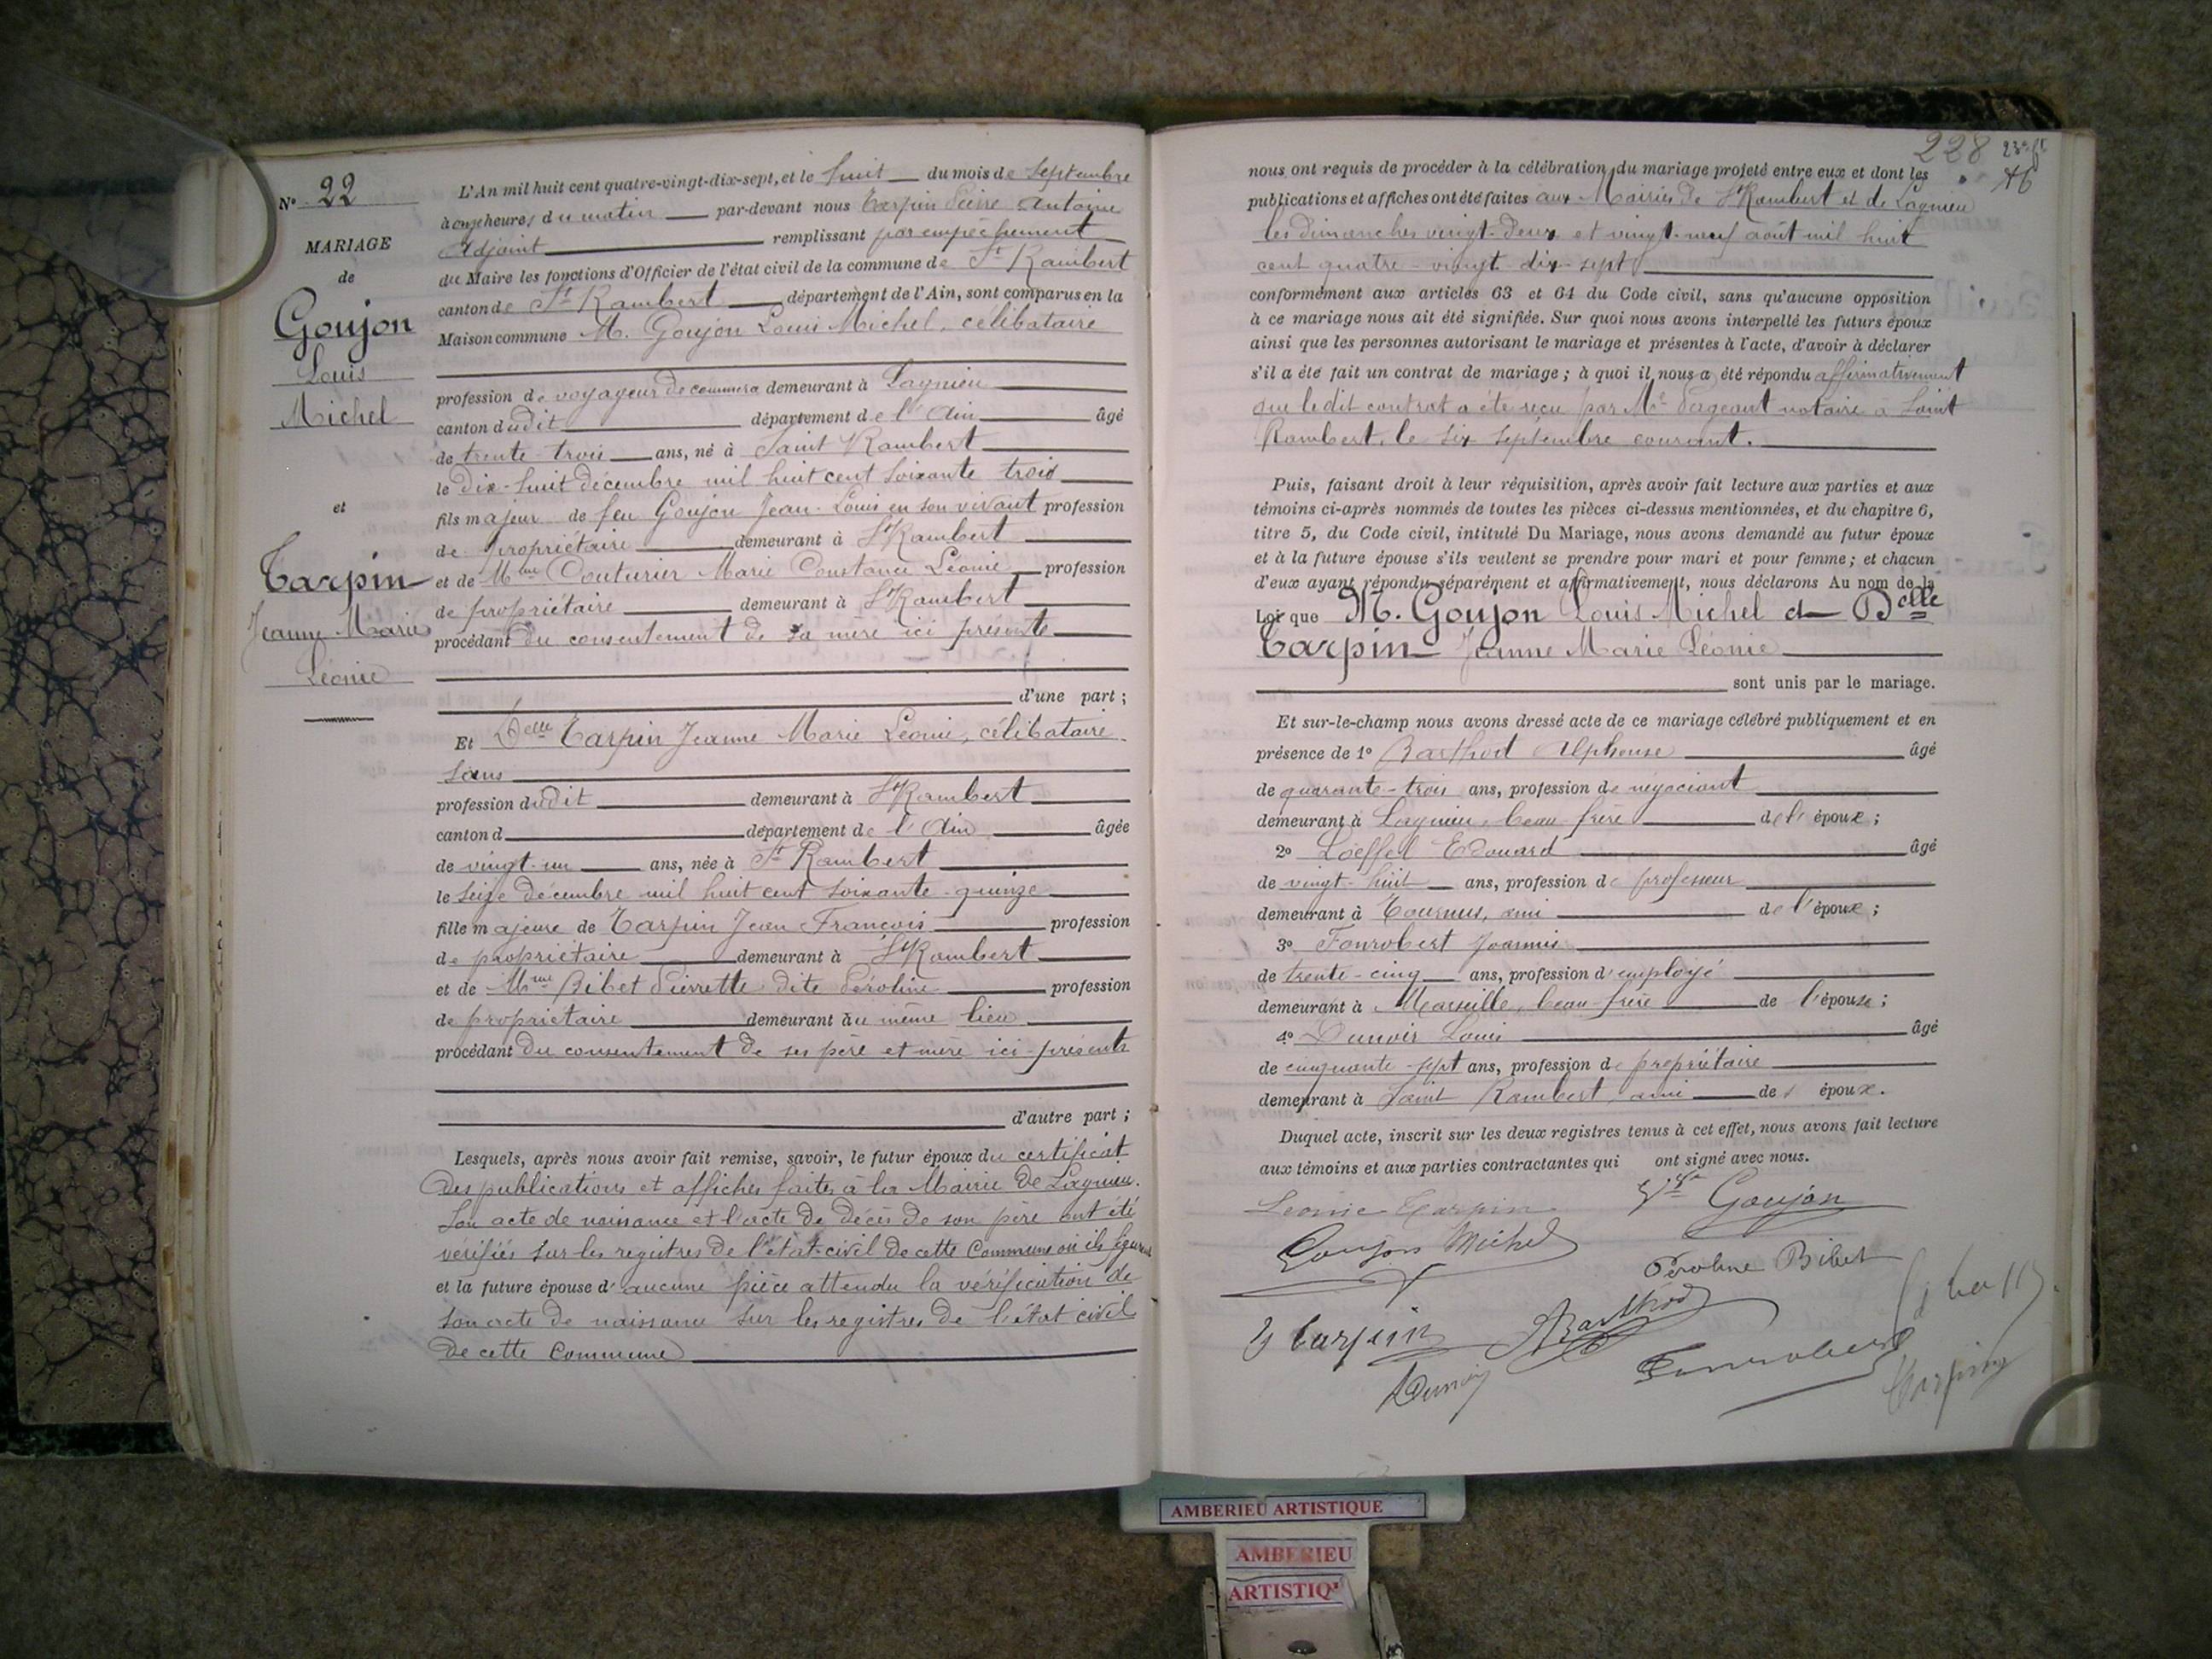 N° 22
MARIAGE
de
Goujon
Louis
Michel
et
Tarpin
Jeanne Marie
Léonie
L'An mil huit cent quatre-vingt-dix-sept, et le huit du mois de Septembre
à onze heures du matin par-devant nous Tarpin Pierre Antoine
Adjoint remplissant par empêchement
du Maire les fonctions d'Officier de l'état civil de la commune de St Rambert
canton de St Rambert département de l'Ain, sont comparus en la
Maison commune M. Goujon Louis Michel, célibataire
profession de voyageur de commerce demeurant à Lagnieu
canton dudit département de l'Ain âgé
de trente trois ans, né à Saint Rambert
le dix-huit décembre mil huit cent soixante trois
fils majeur de feu Goujon Jean-Louis en son vivant profession
de propriétaire demeurant à St Rambert
et de Mme Couturier Marie Constance Léonie profession
de propriétaire demeurant à St Rambert
procédant du consentement de sa mère ici présente
d'une part ;
Et Delle Tarpin Jeanne Marie Léonie, célibataire
sans
profession dudit demeurant à St Rambert
canton d département de l'Ain âgée
de vingt-un ans, née à St Rambert
le seize décembre mil huit cent soixante-quinze
fille majeure de Tarpin Jean François profession
de propriétaire demeurant à St Rambert
et de Mme Bibet Pierrette dite Péroline profession
de propriétaire demeurant au même lieu
procédant du consentement de ses père et mère ici présents
d'autre part ;
Lesquels, après nous avoir fait remise, savoir, le futur époux du certificat
des publications et affiches faites à la Mairie de Lagnieu.
Son acte de naissance et l'acte de décès de son père ont été
vérifiés sur les registres de l'état-civil de cette Commune où ils figurent
et la future épouse d'aucune pièce attendu la vérification de
son acte de naissance sur les registres de l'état civil
de cette Commune
228
nous ont requis de procéder à la célébration du mariage projeté entre eux et dont les
publications et affiches ont été faites aux Mairies de St Rambert et de Lagnieu
les dimanches vingt-deux et vingt-neuf août mil huit
cent quatre-vingt-dix-sept
conformément aux articles 63 et 64 du Code civil, sans qu'aucune opposition
à ce mariage nous ait été signifiée. Sur quoi nous avons interpellé les futurs époux
ainsi que les personnes autorisant le mariage et présentes à l'acte, d'avoir à déclarer
s'il a été fait un contrat de mariage ; à quoi il nous a été répondu affirmativement
que ledit contrat a été reçu par Me Sageant notaire à Saint
Rambert, le six septembre courant.
Puis, faisant droit à leur réquisition, après avoir fait lecture aux parties et aux
témoins ci-après nommés de toutes les pièces ci-dessus mentionnées, et du chapitre 6,
titre 5, du Code civil, intitulé Du Mariage, nous avons demandé au futur époux
et à la future épouse s'ils veulent se prendre pour mari et pour femme ; et chacun
d'eux ayant répondu séparément et affirmativement, nous déclarons Au nom de la
Loi que M. Goujon Louis Michel et Delle
Tarpin Jeanne Marie Léonie
sont unis par le mariage.
Et sur-le-champ nous avons dressé acte de ce mariage célébré publiquement et en
présence de 1° Barthod Alphonse âgé
de quarante-trois ans, profession de négociant
demeurant à Lagnieu, beau-frère de l'époux ;
2° Loeffel Edouard âgé
de vingt-huit ans, profession de professeur
demeurant à Tournus, ami de l'époux ;
3° Fourobert Joannis
de trente-cinq ans, profession d'employé
demeurant à Marseille, beau-frère de l'épouse ;
4° Dunoir Louis âgé
de cinquante-sept ans, profession de propriétaire
demeurant à Saint Rambert ami des époux.
Duquel acte, inscrit sur les deux registres tenus à cet effet, nous avons fait lecture
aux témoins et aux parties contractantes qui ont signé avec nous.
Léonie Tarpin Vve Goujon
Goujon Michel
Péroline Bibet
Tarpin ABarthod
LDunoir Fourobert Tarpin
AMBERIEU ARTISTIQUE
AMBERIEU
ARTISTIQ